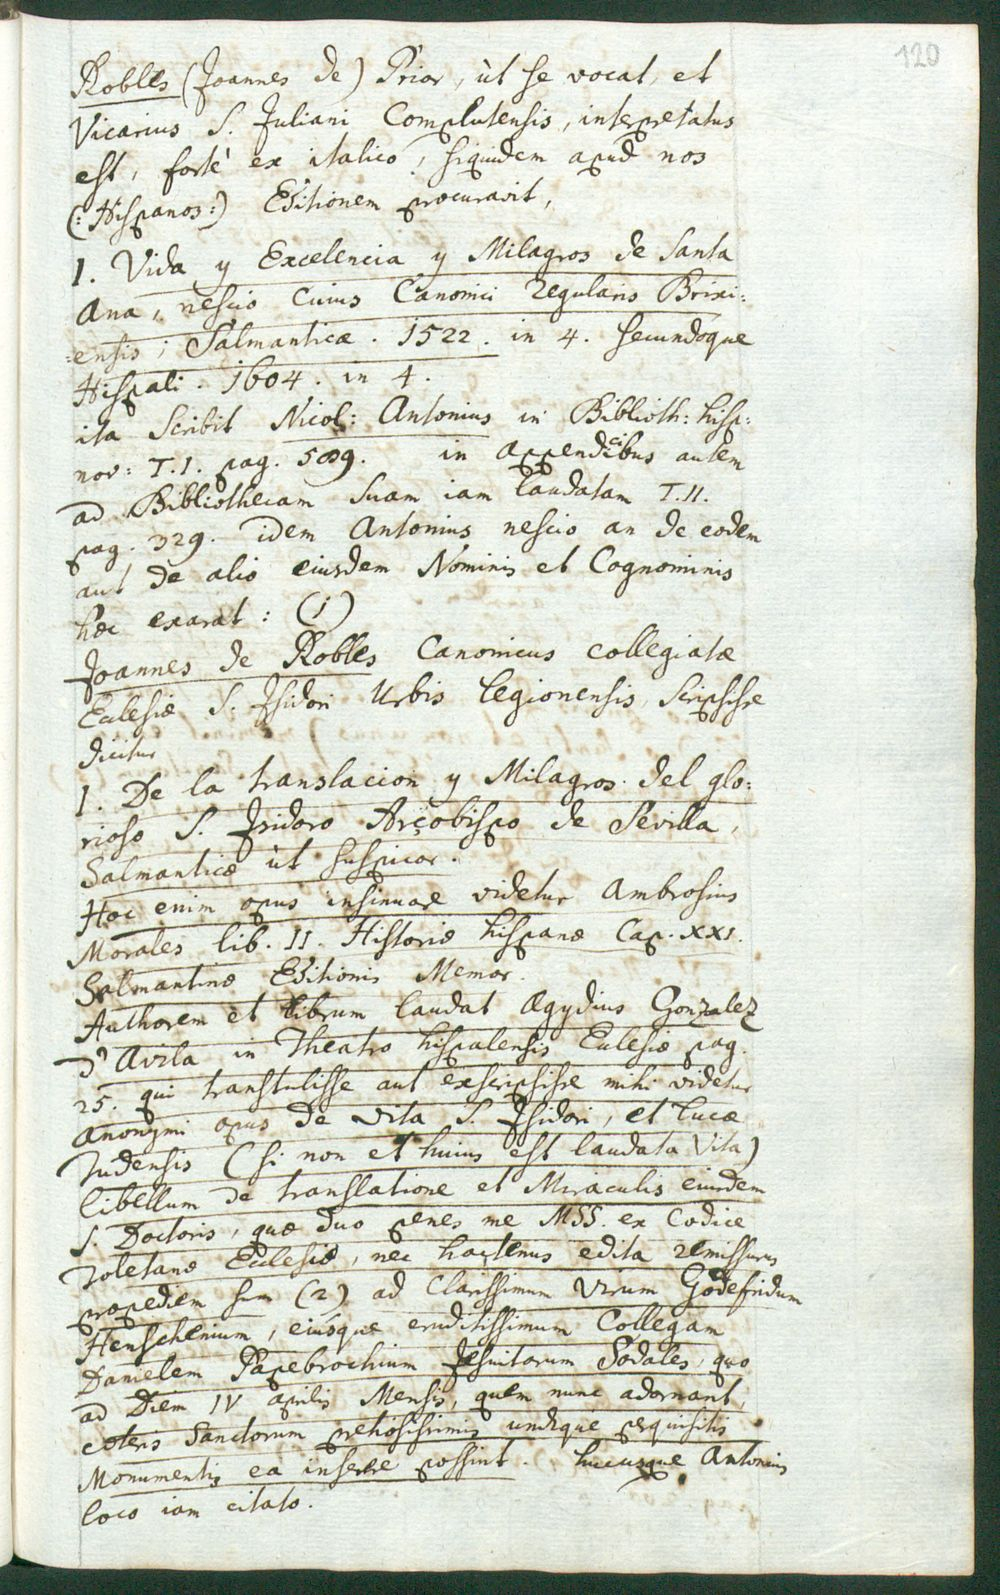 120
Robles (Joannes de) Prior, ùt se vocat, et
Vicarius S. Juliani Complutensis, interpretatus
est, fortè ex italico, siquidem apud nos
(: Hispanos :) Editionem procuravit,
1. Vida y Excelencia y Milagros de Santa
Ana, nescio cuius Canonici Regularis Brixi:
=ensis; Salmanticæ. 1522. in 4. secundoque
Hispali. 1604. in 4.
ita scribit Nicol: Antonius in Biblioth: hisp:
nov: T.I. pag. 589. in appendicibus autem
ad Bibliothecam suam iam laudatam T.II.
pag. 329. idem Antonius nescio an de eodem
aut de alio eiusdem Nominis et Cognominis
hæc exarat: (1)
Joannes de Robles Canonicus collegiatæ
Eclesiæ S. Isidori Urbis Legionensis, scripsisse
dicitur
1. De la translacion y Milagros del glo:
rioso S. Isidoro Arçobispo de Sevilla,
Salmanticæ ùt suspicor.
Hoc enim opus insinuare videtur Ambrosius
Morales lib. 11. Historiæ hispanæ Cap. XXI.
Salmantinæ Editionis Memor.
Authorem et librum laudat Ægydius Gonzalez
d'Avila in Theatro hispalensis Eclesiæ pag.
25. qui transtulisse aut exscripsisse mihi videtur
Anonymi opus de vita S. Isidori, et Lucæ
Tudensis (si non et huius est laudata Vita)
libellum de translatione et Miraculis eiusdem
S. Doctoris, quæ duo penes me MSS. ex Codice
Toletanæ Eclesiæ, nec hactenus edita remissurus
propediem sum (2) ad Clarissimum Virum Godefridum
Henschenium, eiusque eruditissimum Collegam
Danielem Papebrochium Jesuitarum Sodales, quo
ad Diem IV aprilis Mensis, quem nunc adornant,
cæteris Sanctorum pretiosissimis undique perquisitis
Monumentis ea inserere possint. hucusque Antonius
loco iam citato.